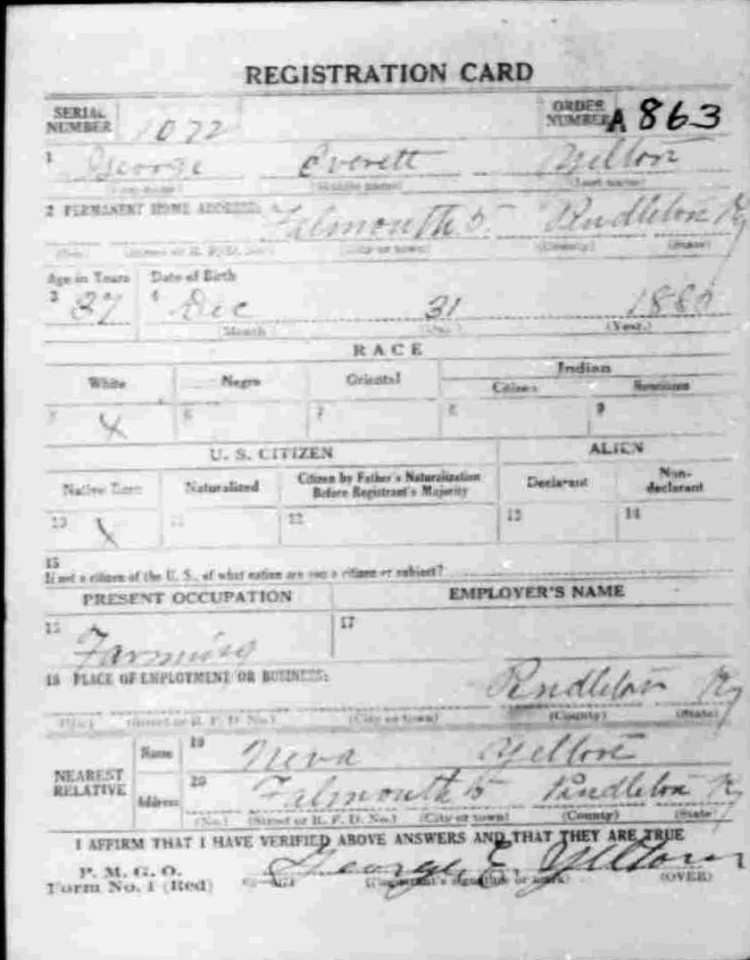 REGISTRATION CARD
SERIAL NUMBER 1072 ORDER NUMBER A 863
1 George Everett Yelton
(First name) (Middle name) (Last name)
2 PERMANENT HOME ADDRESS: Falmouth 5 Pendleton Ky
(No.) (Street or R. F. D. No.) (City or town) (County) (State)
Age in Years Date of Birth
3 37 4 Dec 31 1880
(Month) (Day) (Year.)
RACE
White Negro Oriental Indian
Citizen Noncitizen
5 X 6 7 8 9
U. S. CITIZEN ALIEN
Native Born Naturalized Citizen by Father's Naturalization Before Registrant's Majority Declarant Non-declarant
10 X 11 12 13 14
15
If not a citizen of the U. S., of what nation are you a citizen or subject?
PRESENT OCCUPATION EMPLOYER'S NAME
16 Farming 17
18 PLACE OF EMPLOYMENT OR BUSINESS:
Pendleton Ky
(No.) (Street or R. F. D. No.) (City or town) (County) (State)
NEAREST RELATIVE Name 19 Neva Yelton
Address 20 Falmouth 5 Pendleton Ky
(No.) (Street or R. F. D. No.) (City or town) (County) (State)
I AFFIRM THAT I HAVE VERIFIED ABOVE ANSWERS AND THAT THEY ARE TRUE
P. M. G. O.
Form No. 1 (Red) George E. Yelton
(Registrant's signature or mark) (OVER)